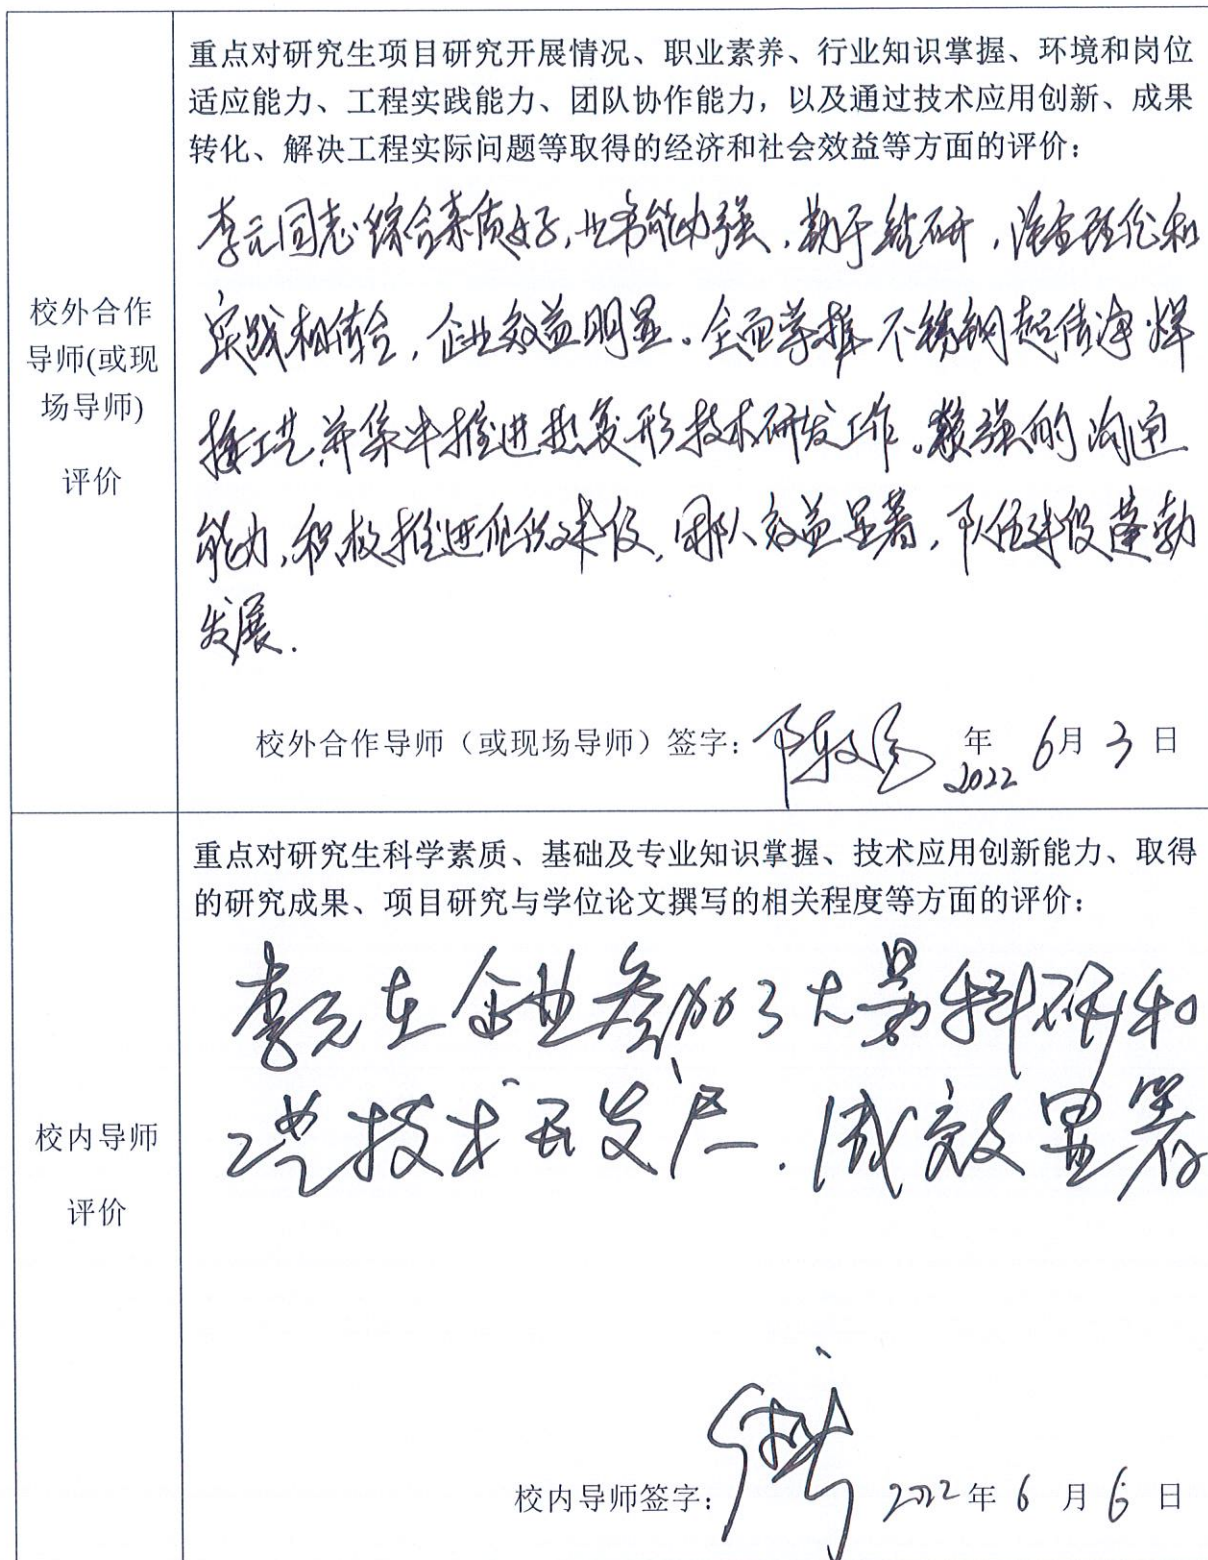 重点对研究生项目研究开展情况、职业素养、行业知识掌握、环境和岗位
适应能力、工程实践能力、团队协作能力，以及通过技术应用创新、成果
转化、解决工程实际问题等取得的经济和社会效益等方面的评价：
李元同志综合素质好，业务能力强，勤于钻研，注重理论和
实践相结合，企业效益明显。全面掌握不锈钢超洁净焊
接工艺，并集中推进热变形技术研发工作。较强的沟通
能力，积极推进组织建设，团队效益显著，队伍建设蓬勃
发展.
校外合作
导师(或现
场导师)
评价
校外合作导师（或现场导师）签字： 2022年 6月 3 日
重点对研究生科学素质、基础及专业知识掌握、技术应用创新能力、取得
的研究成果、项目研究与学位论文撰写的相关程度等方面的评价：
李元在企业参加了大量科研和
工艺技术研发，成效显著
校内导师
评价
校内导师签字： 2022年 6 月 6 日